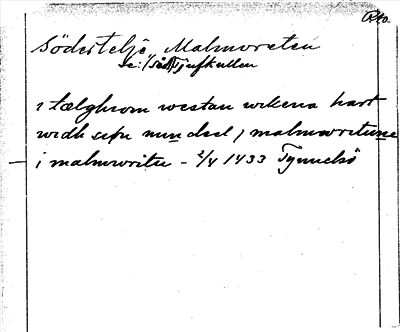 Rio.
Södertelje, Malmvreten
se: (söd) Tjufkullen
i tælghrom westan wikena hart
widh upn mun deel j malmwritune
i malmwritu – 2/V 1433 Tynnelsö